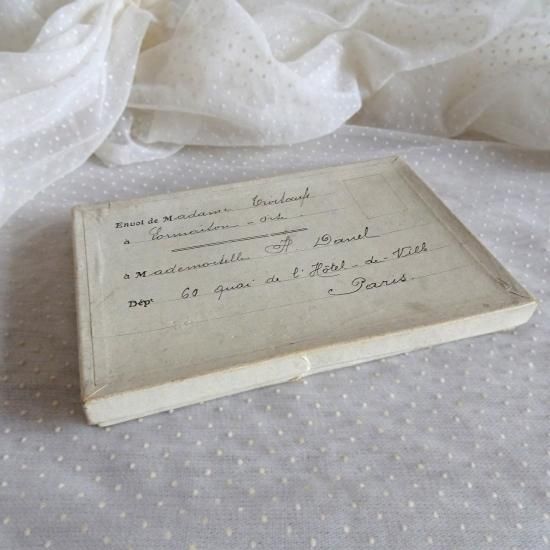 Envoi de Madame
à Cormainton - Orb.
à Mademoiselle A. Danel
Dépt 60 quai de l'Hôtel-de-Ville
Paris.